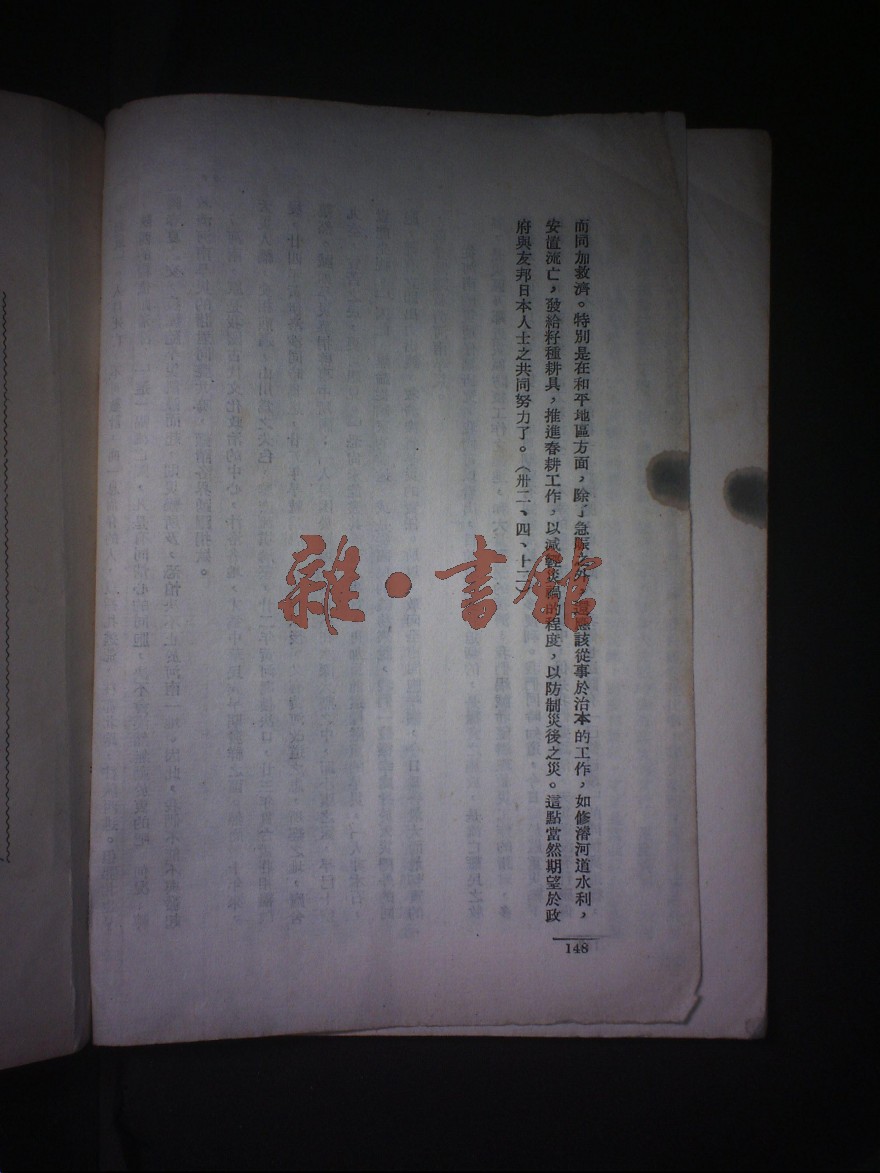 而同加救濟。特別是在和平地區方面，除了急賑之外，還應該從事於治本的工作，如修濬河道水利，
安置流亡，發給籽種耕具，推進春耕工作，以減輕災禍的程度，以防制災後之災。這點當然期望於政
府與友邦日本人士之共同努力了。（卅二、四、十二
148
雜·書館